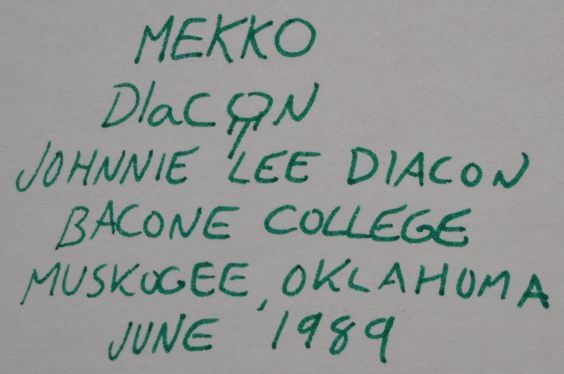 MEKKO
DIaCON
JOHNNIE LEE DIACON
BACONE COLLEGE
MUSKOGEE, OKLAHOMA
JUNE 1989